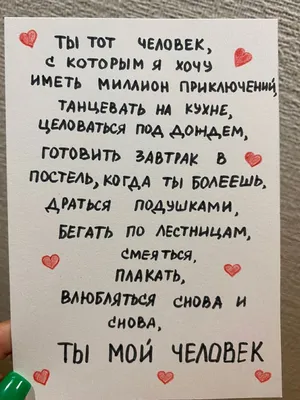 ТЫ ТОТ ЧЕЛОВЕК,
С КОТОРЫМ Я ХОЧУ
ИМЕТЬ МИЛЛИОН ПРИКЛЮЧЕНИЙ,
ТАНЦЕВАТЬ НА КУХНЕ,
ЦЕЛОВАТЬСЯ ПОД ДОЖДЕМ,
ГОТОВИТЬ ЗАВТРАК В
ПОСТЕЛЬ, КОГДА ТЫ БОЛЕЕШЬ,
ДРАТЬСЯ ПОДУШКАМИ,
БЕГАТЬ ПО ЛЕСТНИЦАМ,
СМЕЯТЬСЯ,
ПЛАКАТЬ,
ВЛЮБЛЯТЬСЯ СНОВА И
СНОВА,
ТЫ МОЙ ЧЕЛОВЕК